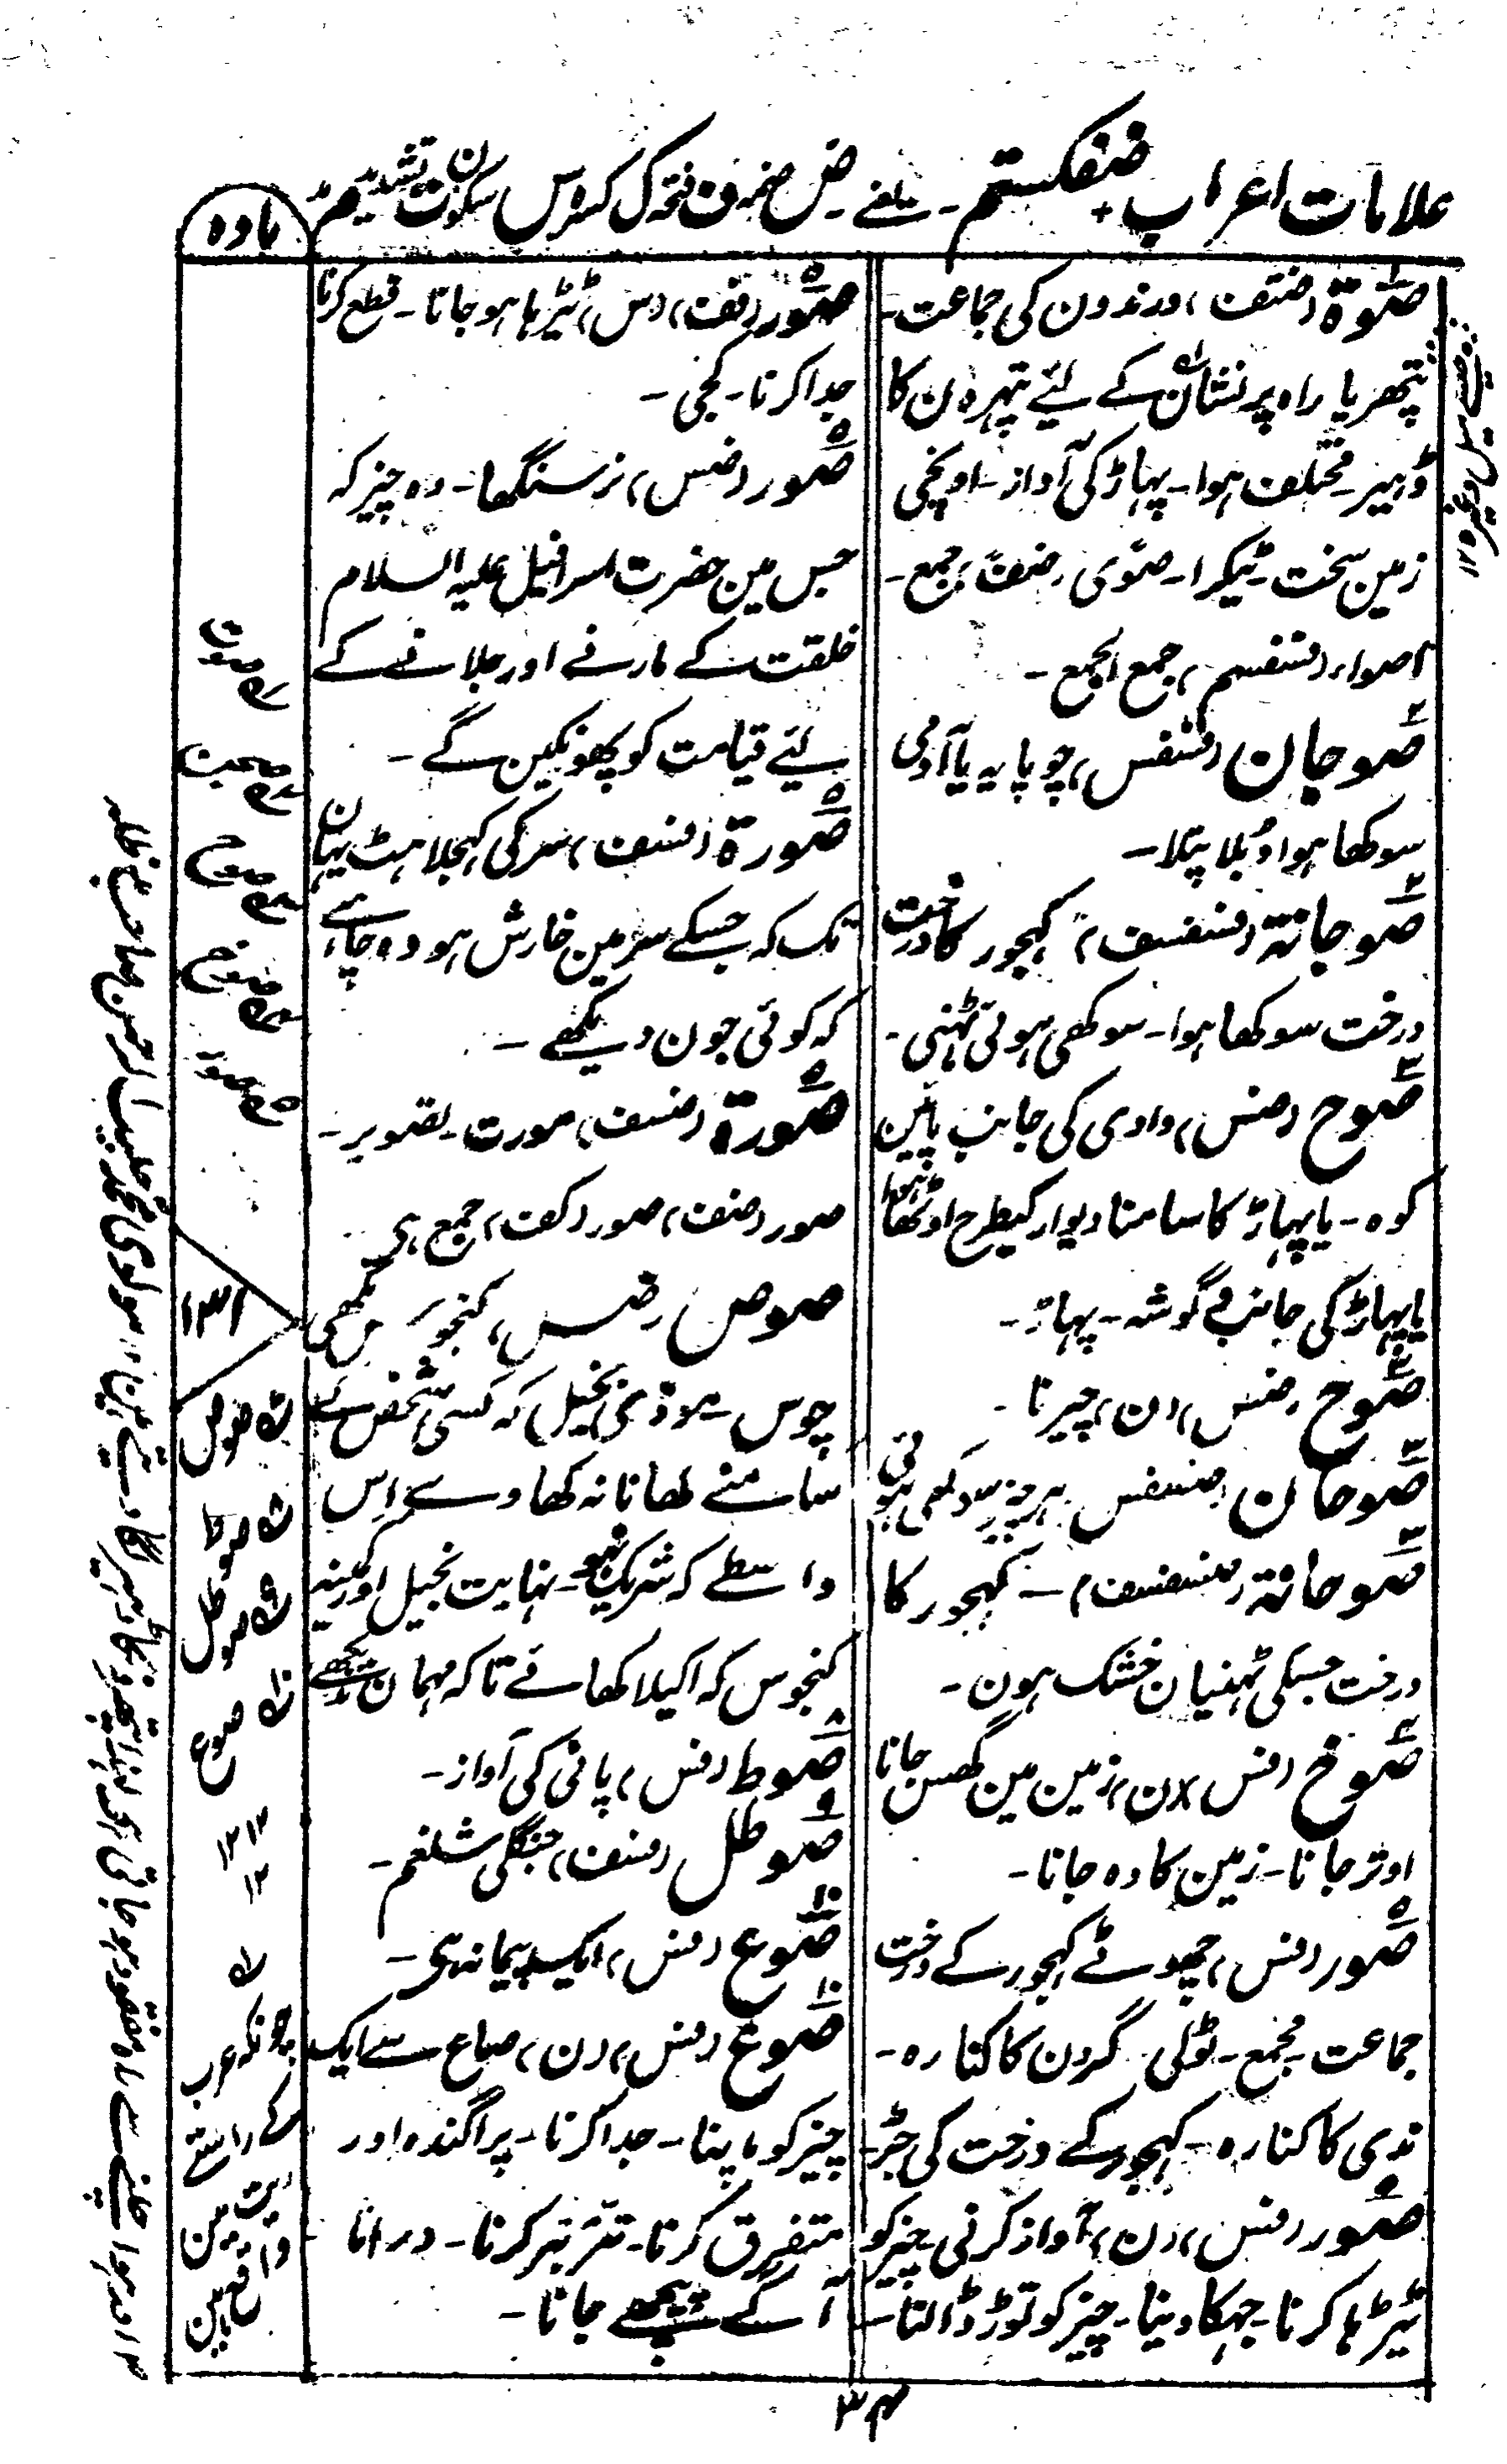 علامات اعراب ضفکستم ۔ یعنے ض ضمہ ف فتحہ ک کسرہ س سکون ت تشدید م مد
مادہ
صُوَّۃ (ضتف) درندون کی جماعت۔
پتھر یا راہ پر نشان کے لئے پتہرون کا
ڈہیر۔ مختلف ہوا۔ پہاڑ کی آواز۔ اونچی
زمین سخت۔ ٹیکرا۔ صوی (ضف) جمع۔
اصواء (فسفسم) جمع الجمع۔
صوجان (فسفس) چوپایہ یا آدمی
سوکھا ہوا دُبلا پتلا۔
صوجانۃ (فسفسف) کہجور کا درخت
درخت سوکھا ہوا۔ سوکھی ہوئی ٹہنی۔
صوح (ضس) وادی کی جانب پائین
کوہ۔ یا پہاڑ کا سامنا دیوار کیطرح اوٹھا ہوا
یا پہاڑ کی جانب و گوشہ۔ پہاڑ۔
صوح (ضس) (ن) چیرنا۔
صوحان (ضسفس) ہر چیز سوکھی ہوئی
صوحانۃ (ضسفسف) ۔ کہجور کا
درخت جسکی ٹہنیان خشک ہون۔
صوخ (فس) (ن) زمین مین گھس جانا
اوتر جانا۔ زمین کا دہ جانا۔
صور (فس) چھوٹے کہجور کے درخت
جماعت۔ مجمع۔ ٹولی۔ گردن کا کنارہ۔
ندی کا کنارہ۔ کہجور کے درخت کی جڑ۔
صور (فس) (ن) آواز کرنی۔ چیز کو
ٹیڑہا کرنا۔ جہکا دینا۔ چیز کو توڑ ڈالنا۔
صور (فف) (س) ٹیڑہا ہو جانا۔ قطع کرنا
جدا کرنا۔ کجی۔
صور (ضس) نرسنگھا۔ وہ چیز کہ
جس مین حضرت اسرافیل علیہ السلام
خلقت کے مارنے اور جلانے کے
لئے قیامت کو پھونکین گے۔
صورۃ (فسف) سر کی کہجلاہٹ یہان
تک کہ جسکے سر مین خارش ہو وہ چاہے
کہ کوئی جون دیکھے۔
صورۃ (ضسف) مورت۔ تصویر۔
صور (ضف) صور (کف) جمع ہی
صوص (ضس) کنجوس مکھی
چوس۔ موذی بخیل کہ کسی شخص کے
سامنے کھانا نہ کھاوے اِس
واسطے کہ شریک نہو۔ نہایت بخیل اور کمینہ
کنجوس کہ اکیلا کھائے تاکہ مہمان نہ دیکھے
صوط (فس) پانی کی آواز۔
صوطل (فسف) جنگلی شلغم۔
صوع (فس) ایک پیمانہ ہی۔
صوع (فس) (ن) صاع سے ایک
چیز کو ماپنا۔ جدا کرنا۔ پراگندہ اور
متفرق کرنا۔ تتر بتر کرنا۔ درانا
آگے پیچھے جانا۔
صوت
صوح
صوخ
صور
۱۳۱
صوص
صوط
صوطل
صوع
۱۲
چونکہ عرب
کے راستے
ریت مین
واقع ہین
۳۴